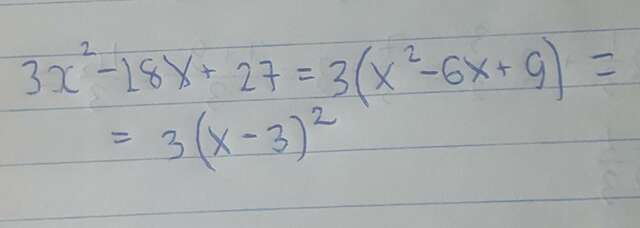 3x² - 18x + 27 = 3(x² - 6x + 9) =
= 3(x - 3)²